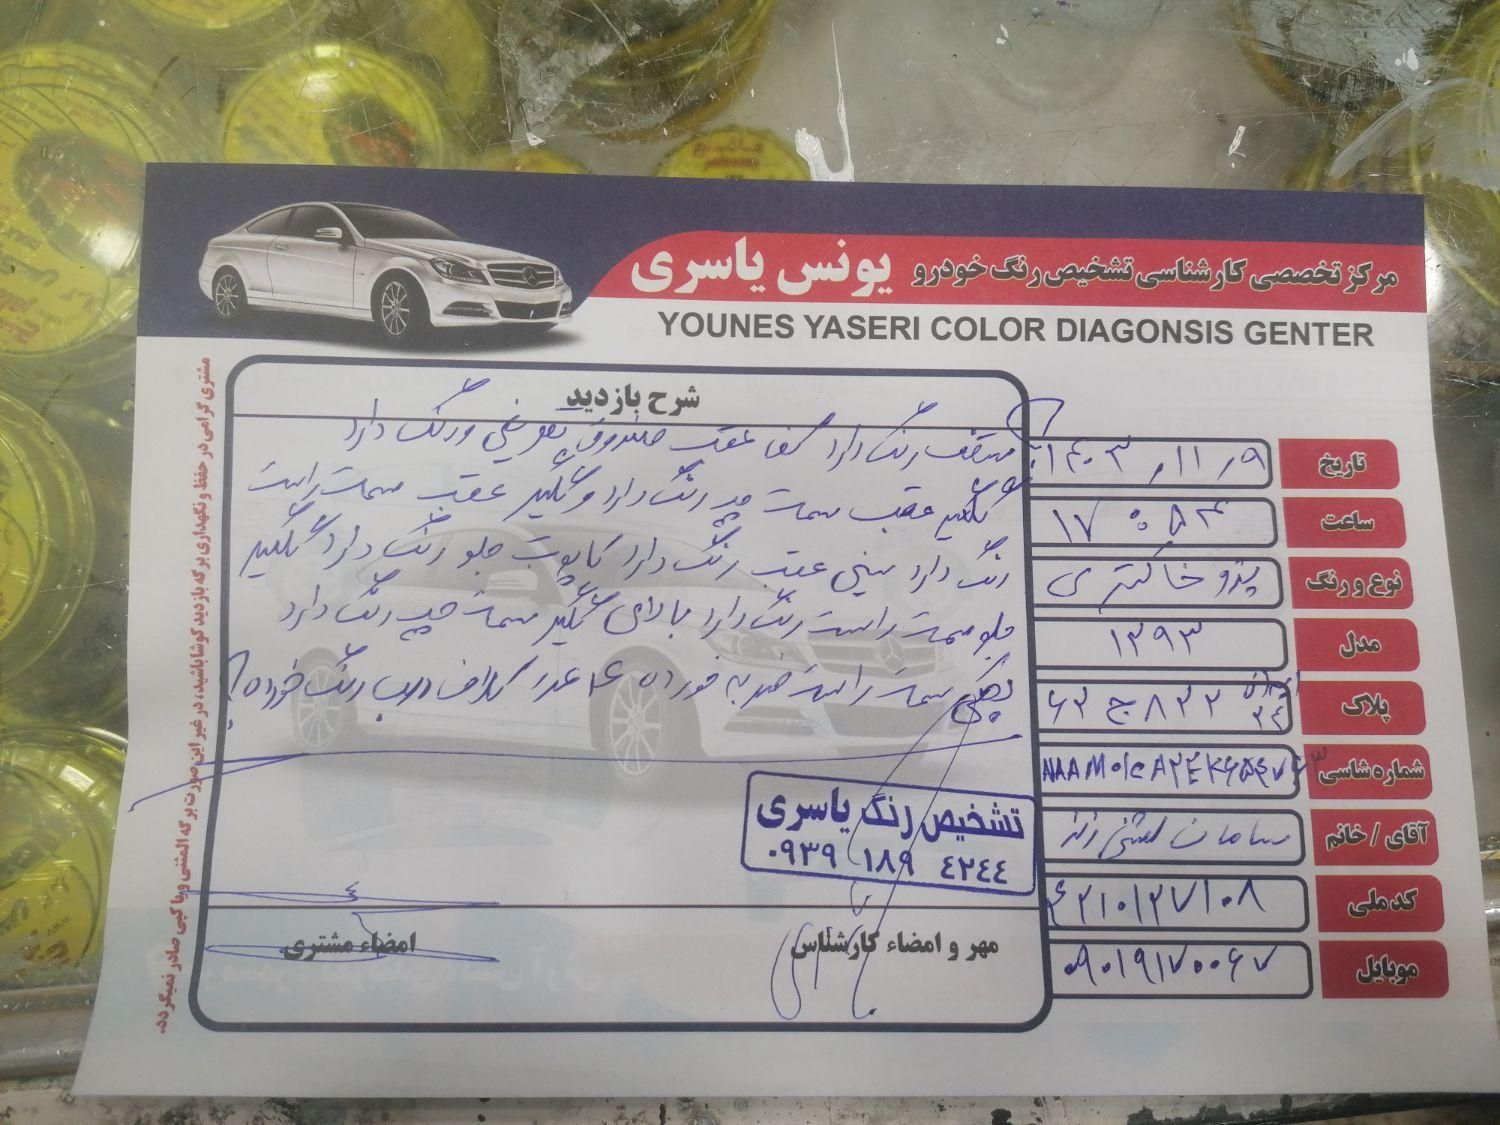 مرکز تخصصی کارشناسی تشخیص رنگ خودرو یونس یاسری
YOUNES YASERI COLOR DIAGONSIS GENTER
شرح بازدید
سقف رنگ دارد کف عقب صندوق تعویض و رنگ دارد
گلگیر عقب سمت چپ رنگ دارد و گلگیر عقب سمت راست
رنگ دارد سینی عقب رنگ دارد کاپوت جلو رنگ دارد گلگیر
جلو سمت راست رنگ دارد بالای گلگیر سمت چپ رنگ دارد
سمت راست ضربه خورده ۴ عدد درب رنگ خورده
تاریخ ۱۴۰۳,۱۱,۹
ساعت ۱۷:۵۴
نوع و رنگ پژو خاکستری
مدل ۱۳۹۳
پلاک ۶۳ ج ۸۳۲
شماره شاسی
آقای / خانم سامان
کد ملی ۴۲۱۰۱۲۷۱۰۸
موبایل ۰۹۰۱۹۱۷۰۰۶۷
تشخیص رنگ یاسری
۰۹۳۹ ۱۸۹ ۴۲۴۴
مهر و امضاء کارشناس
امضاء مشتری
مشتری گرامی در حفظ و نگهداری برگه بازدید کوشا باشید، در غیر این صورت برگه المثنی و یا کپی صادر نمیگردد.